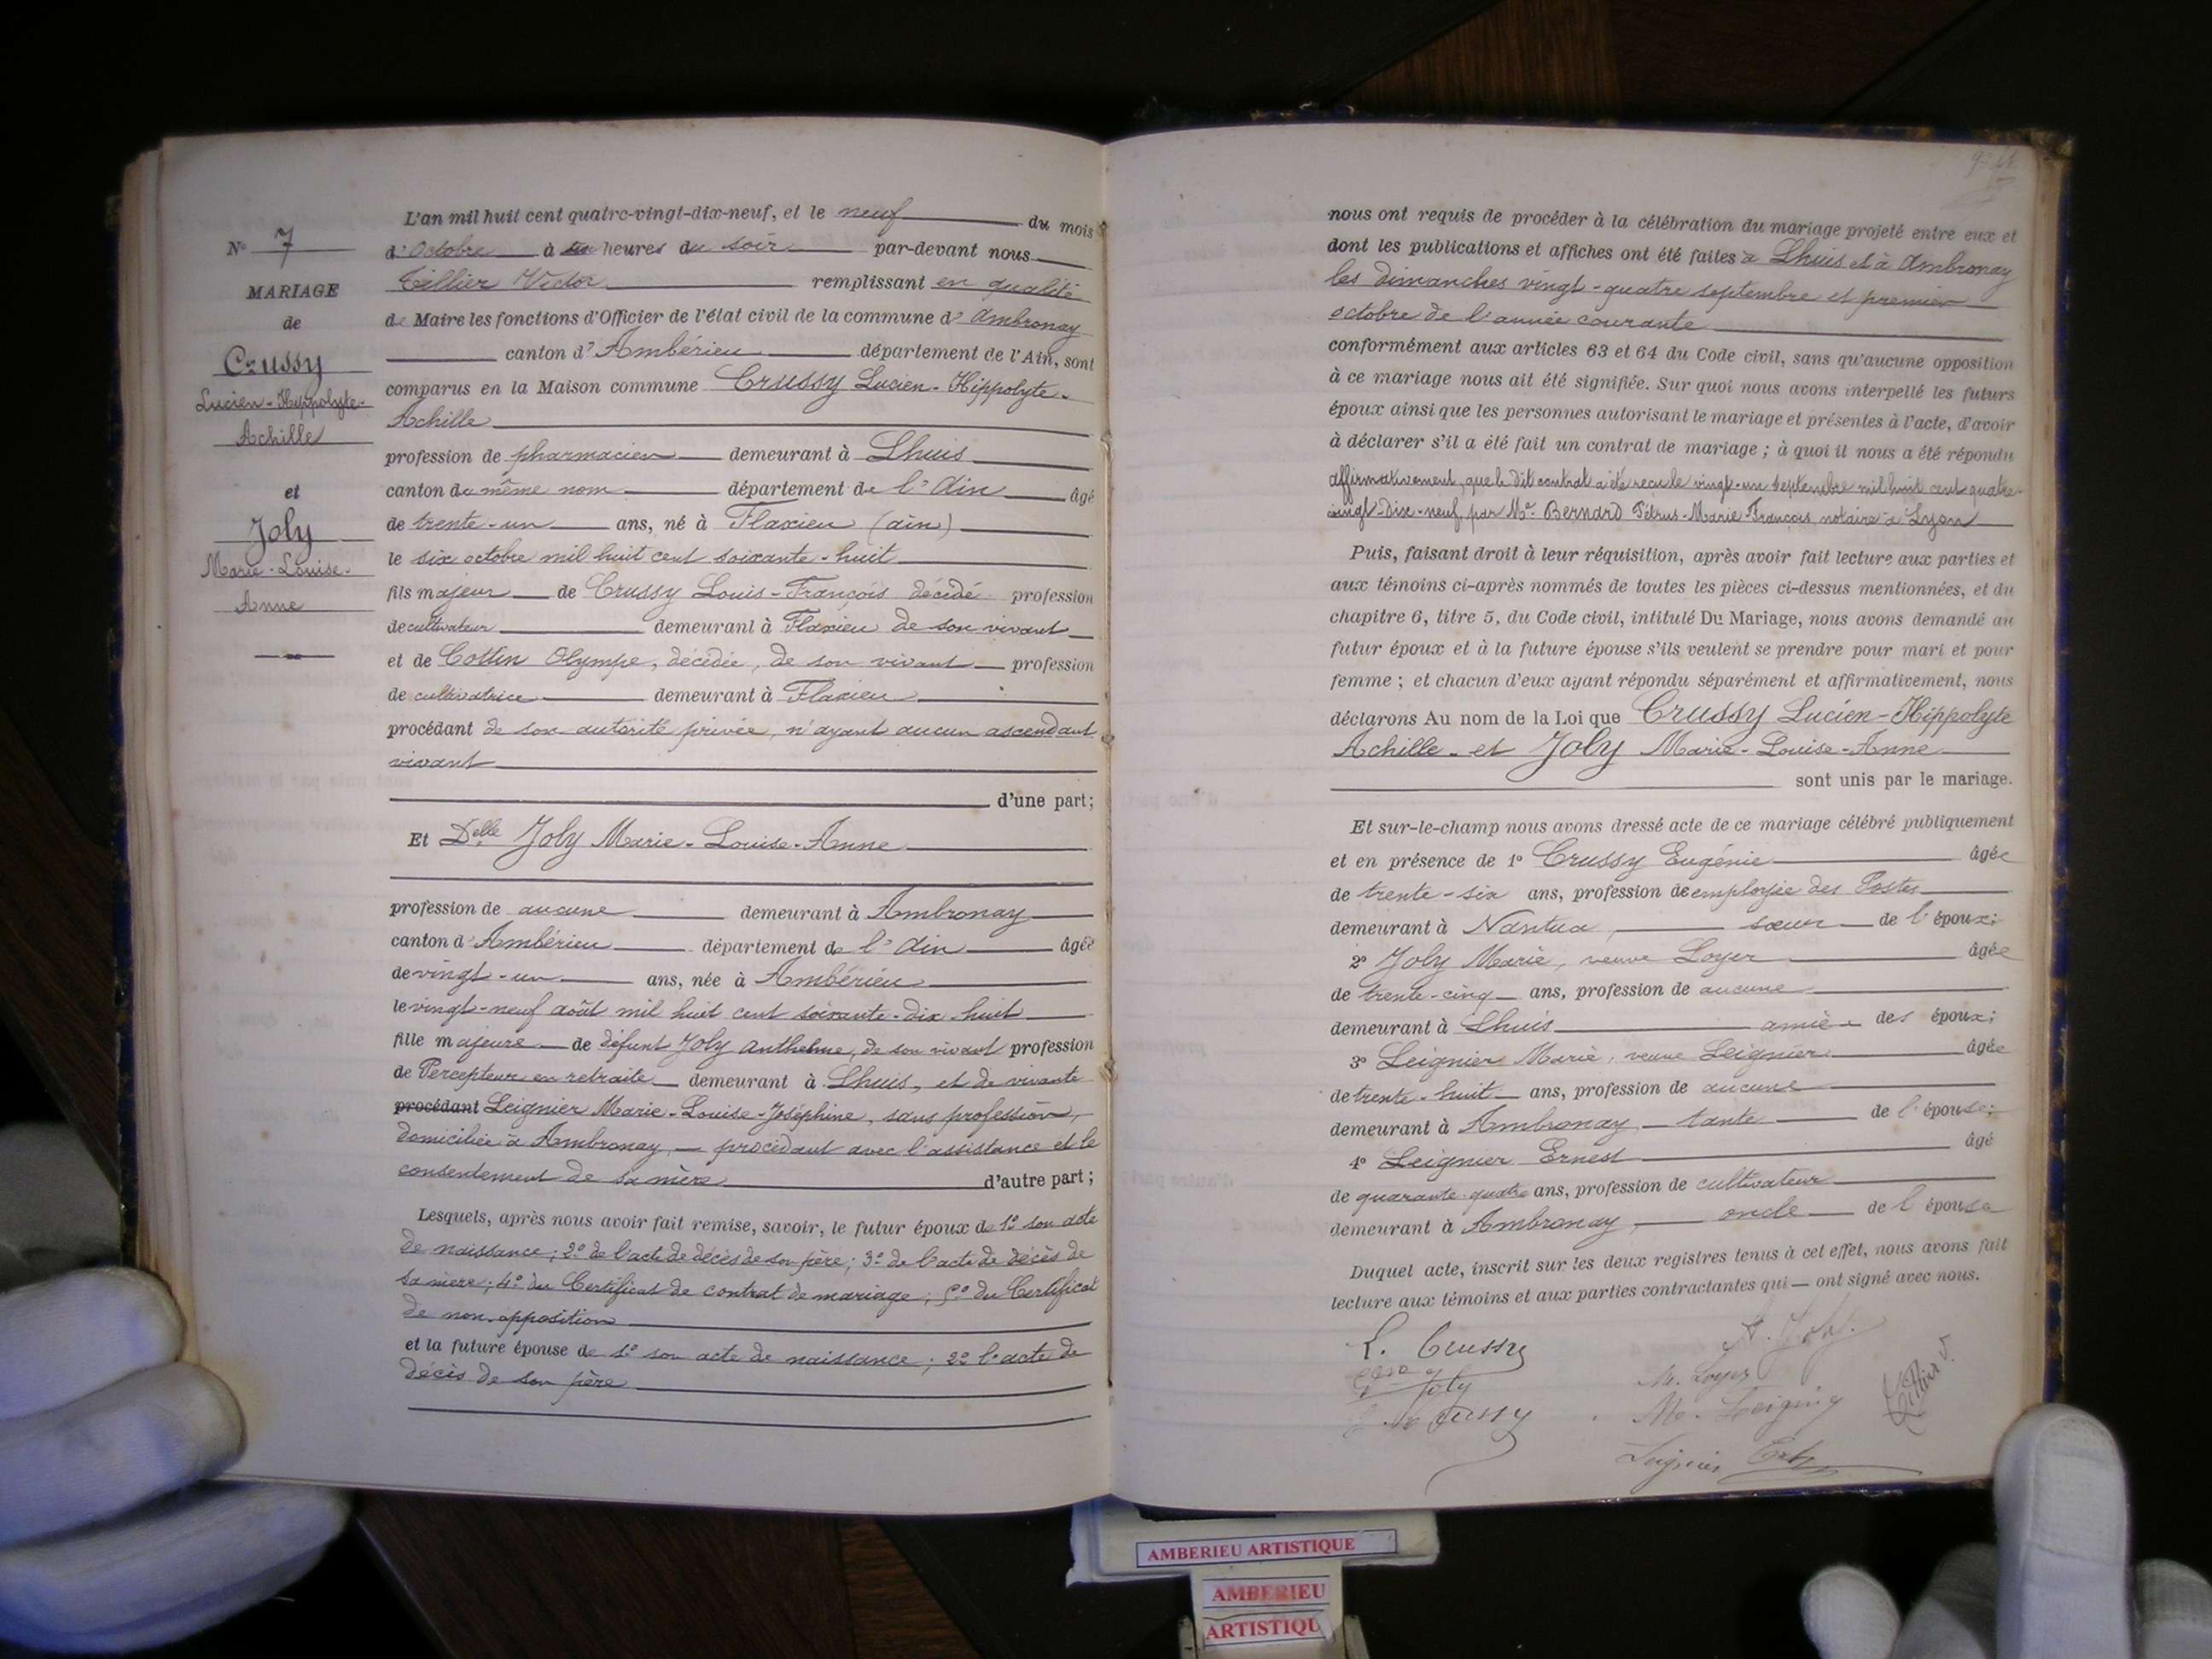 N° 7
MARIAGE
de
Crussy
Lucien-Hippolyte-
Achille
et
Joly
Marie-Louise-
Anne
L'an mil huit cent quatre-vingt-dix-neuf, et le neuf du mois
d'Octobre à six heures du soir par-devant nous
Tillier Victor remplissant en qualité
de Maire les fonctions d'Officier de l'état civil de la commune d'Ambronay
canton d'Ambérieu département de l'Ain, sont
comparus en la Maison commune Crussy Lucien-Hippolyte-
Achille
profession de pharmacien demeurant à Lhuis
canton du même nom département de l'Ain âgé
de trente-un ans, né à Flaxieu (ain)
le six octobre mil huit cent soixante-huit
fils majeur de Crussy Louis-François décédé profession
de cultivateur demeurant à Flaxieu de son vivant
et de Cottin Olympe, décédée, de son vivant profession
de cultivatrice demeurant à Flaxieu
procédant de son autorité privée, n'ayant aucun ascendant
vivant
d'une part;
Et Delle Joly Marie-Louise-Anne
profession de aucune demeurant à Ambronay
canton d'Ambérieu département de l'Ain âgée
de vingt-un ans, née à Ambérieu
le vingt-neuf août mil huit cent soixante-dix-huit
fille majeure de défunt Joly Anthelme, de son vivant profession
de Percepteur en retraite demeurant à Lhuis, et de vivante
procédant Leignier Marie-Louise-Joséphine, sans profession,
domiciliée à Ambronay, procédant avec l'assistance et le
consentement de sa mère d'autre part;
Lesquels, après nous avoir fait remise, savoir, le futur époux de 1° son acte
de naissance; 2° de l'acte de décès de son père; 3° de l'acte de décès de
sa mère; 4° du Certificat de contrat de mariage; 5° du Certificat
de non-opposition
et la future épouse de 1° son acte de naissance; 2° l'acte de
décès de son père
nous ont requis de procéder à la célébration du mariage projeté entre eux et
dont les publications et affiches ont été faites à Lhuis et à Ambronay
les dimanches vingt-quatre septembre et premier
octobre de l'année courante
conformément aux articles 63 et 64 du Code civil, sans qu'aucune opposition
à ce mariage nous ait été signifiée. Sur quoi nous avons interpellé les futurs
époux ainsi que les personnes autorisant le mariage et présentes à l'acte, d'avoir
à déclarer s'il a été fait un contrat de mariage; à quoi il nous a été répondu
affirmativement, que le dit contrat a été reçu le vingt-un septembre mil huit cent quatre-
vingt-dix-neuf, par Me Bernard Pétrus-Marie-François, notaire à Lyon
Puis, faisant droit à leur réquisition, après avoir fait lecture aux parties et
aux témoins ci-après nommés de toutes les pièces ci-dessus mentionnées, et du
chapitre 6, titre 5, du Code civil, intitulé Du Mariage, nous avons demandé au
futur époux et à la future épouse s'ils veulent se prendre pour mari et pour
femme; et chacun d'eux ayant répondu séparément et affirmativement, nous
déclarons Au nom de la Loi que Crussy Lucien-Hippolyte
Achille et Joly Marie-Louise-Anne
sont unis par le mariage.
Et sur-le-champ nous avons dressé acte de ce mariage célébré publiquement
et en présence de 1° Crussy Eugénie âgée
de trente-six ans, profession de employée des Postes
demeurant à Nantua, sœur de l'époux;
2° Joly Marie, veuve Loyer âgée
de trente-cinq ans, profession de aucune
demeurant à Lhuis amie des époux;
3° Leignier Marie, veuve Leignier âgée
de trente-huit ans, profession de aucune
demeurant à Ambronay tante de l'épouse;
4° Leignier Ernest âgé
de quarante-quatre ans, profession de cultivateur
demeurant à Ambronay, oncle de l'épouse
Duquel acte, inscrit sur les deux registres tenus à cet effet, nous avons fait
lecture aux témoins et aux parties contractantes qui ont signé avec nous.
L. Crussy
A. Joly.
Joly
M. Loyer
Tillier V.
Crussy
Leignier
AMBERIEU ARTISTIQUE
AMBERIEU
ARTISTIQU